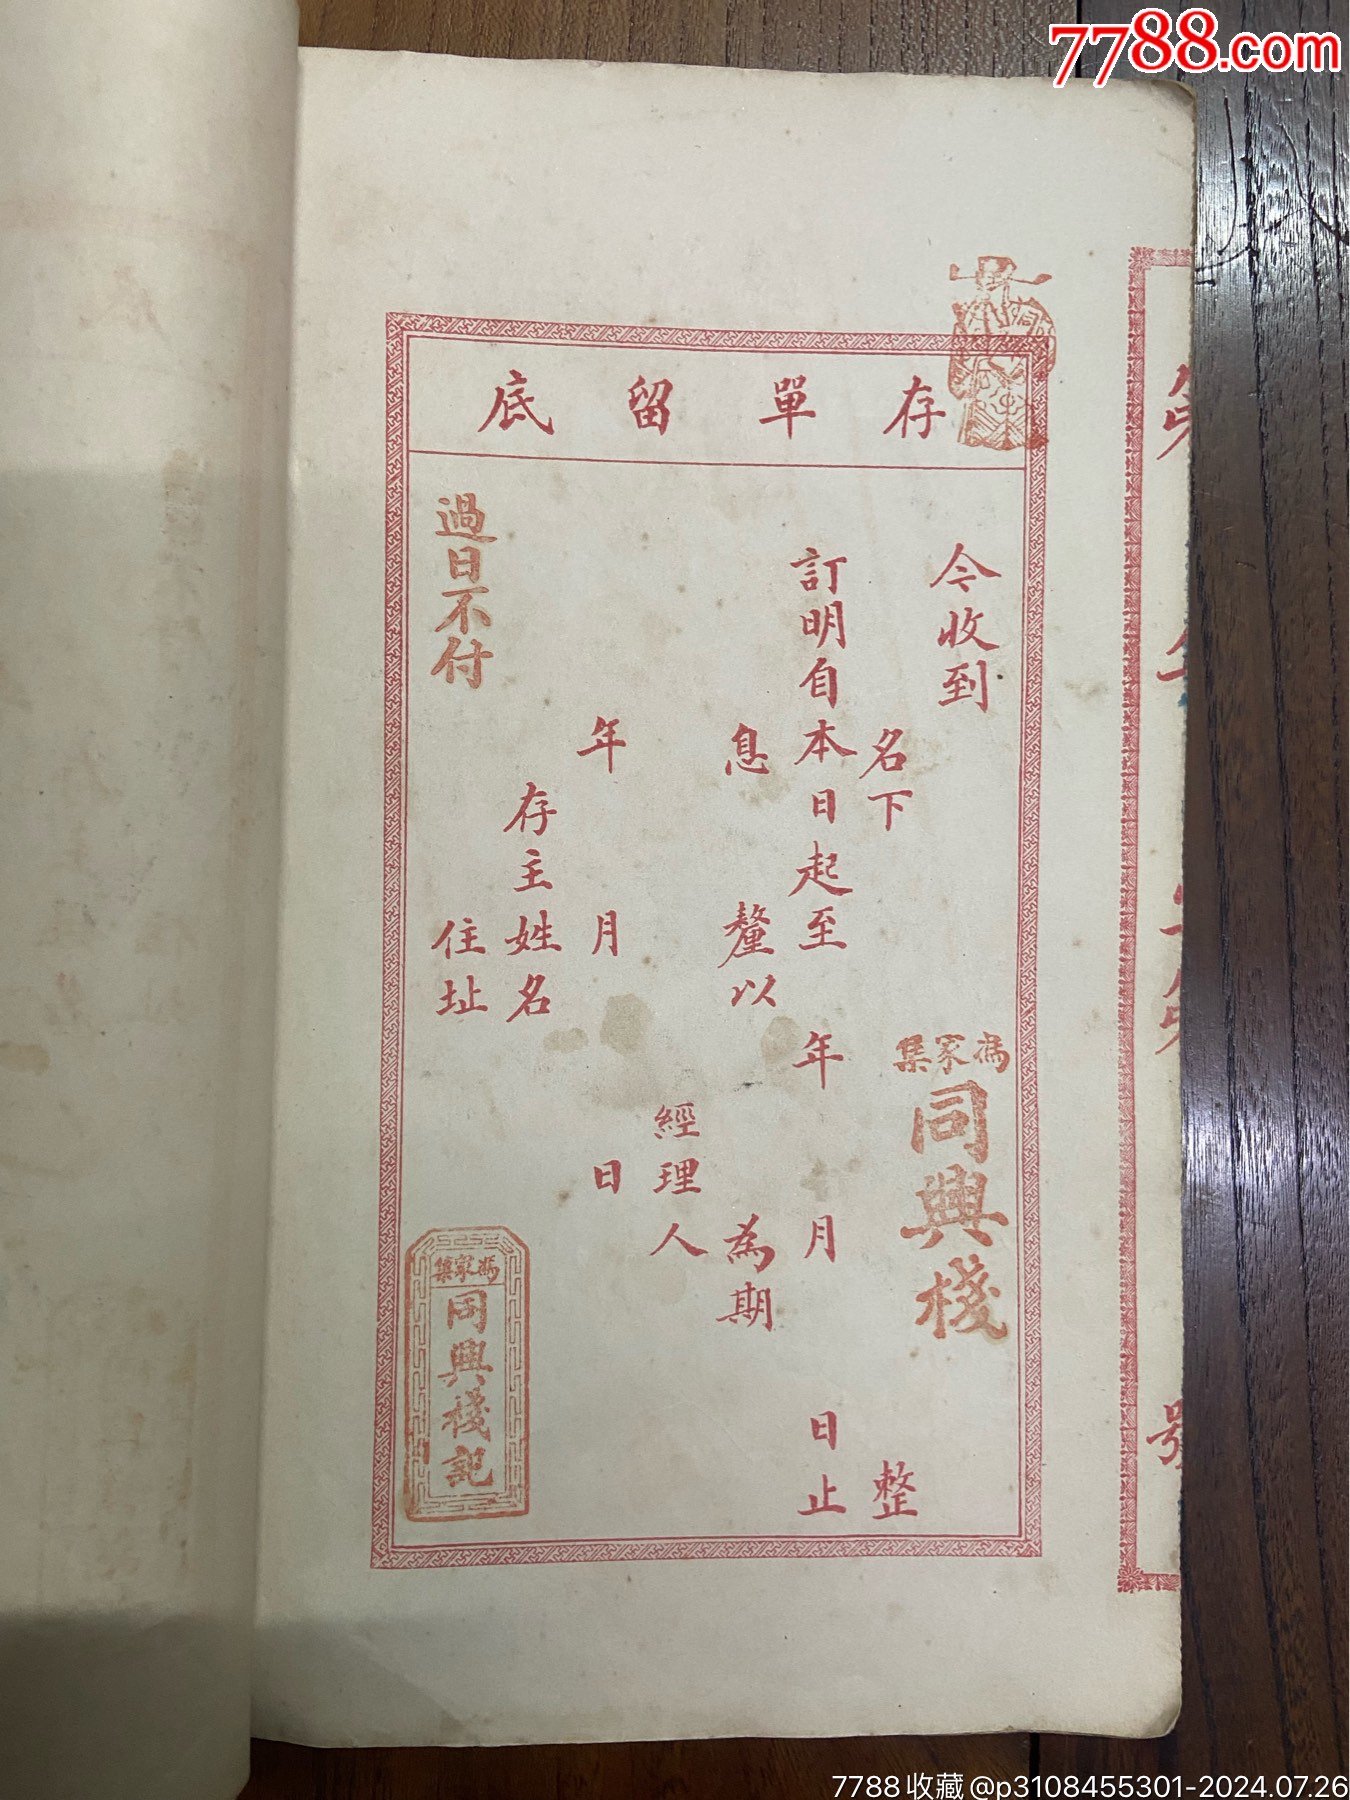 7788.com
存單留底
今收到
名下
整
訂明自本日起至年月日止
息釐以為期
經理人
年月日
存主姓名
住址
過日不付
馮家集
同興棧
馮家集
同興棧記
號
7788收藏@p3108455301-2024.07.26